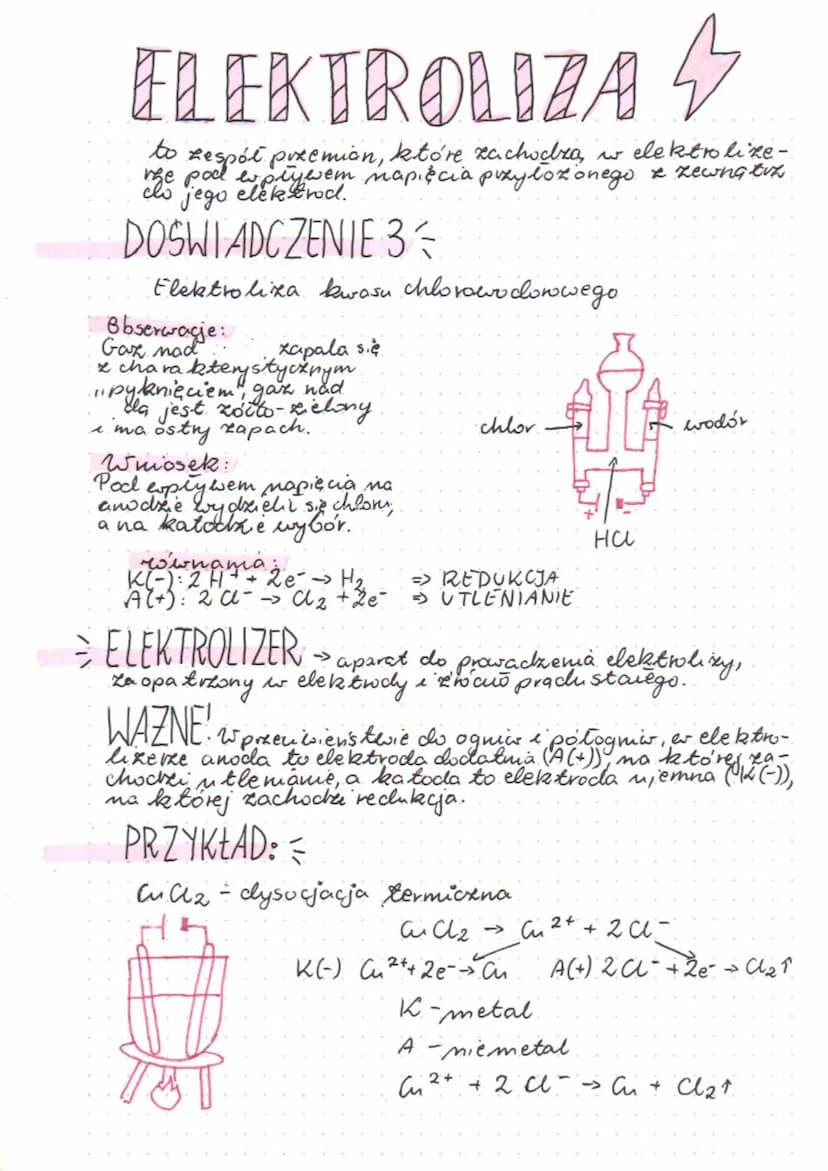 ELEKTROLIZA
to zespół przemian, które zachodzą w elektrolize-
rze pod wpływem napięcia przyłożonego z zewnątrz
do jego elektrod.
DOŚWIADCZENIE 3
Elektroliza kwasu chlorowodorowego
Obserwacje:
Gaz nad zapala się
z charakterystycznym
"pyknięciem", gaz nad
dą jest żółto-zielony
i ma ostry zapach.
chlor
wodór
Wniosek:
Pod wpływem napięcia na
anodzie wydzielił się chlor,
a na katodzie wybór.
+ -
HCl
równania:
K(-): 2H⁺ + 2e⁻ → H₂ ⇒ REDUKCJA
A(+): 2Cl⁻ → Cl₂ + 2e⁻ ⇒ UTLENIANIE
ELEKTROLIZER → aparat do prowadzenia elektrolizy,
zaopatrzony w elektrody i źródło prądu stałego.
WAŻNE! W przeciwieństwie do ogniw i półogniw, w elektro-
lizerze anoda to elektroda dodatnia (A(+)), na której za-
chodzi utlenianie, a katoda to elektroda ujemna (K(-)),
na której zachodzi redukcja.
PRZYKŁAD:
CuCl₂ - dysocjacja termiczna
CuCl₂ → Cu²⁺ + 2Cl⁻
K(-) Cu²⁺ + 2e⁻ → Cu A(+) 2Cl⁻ + 2e⁻ → Cl₂↑
K - metal
A - niemetal
Cu²⁺ + 2Cl⁻ → Cu + Cl₂↑